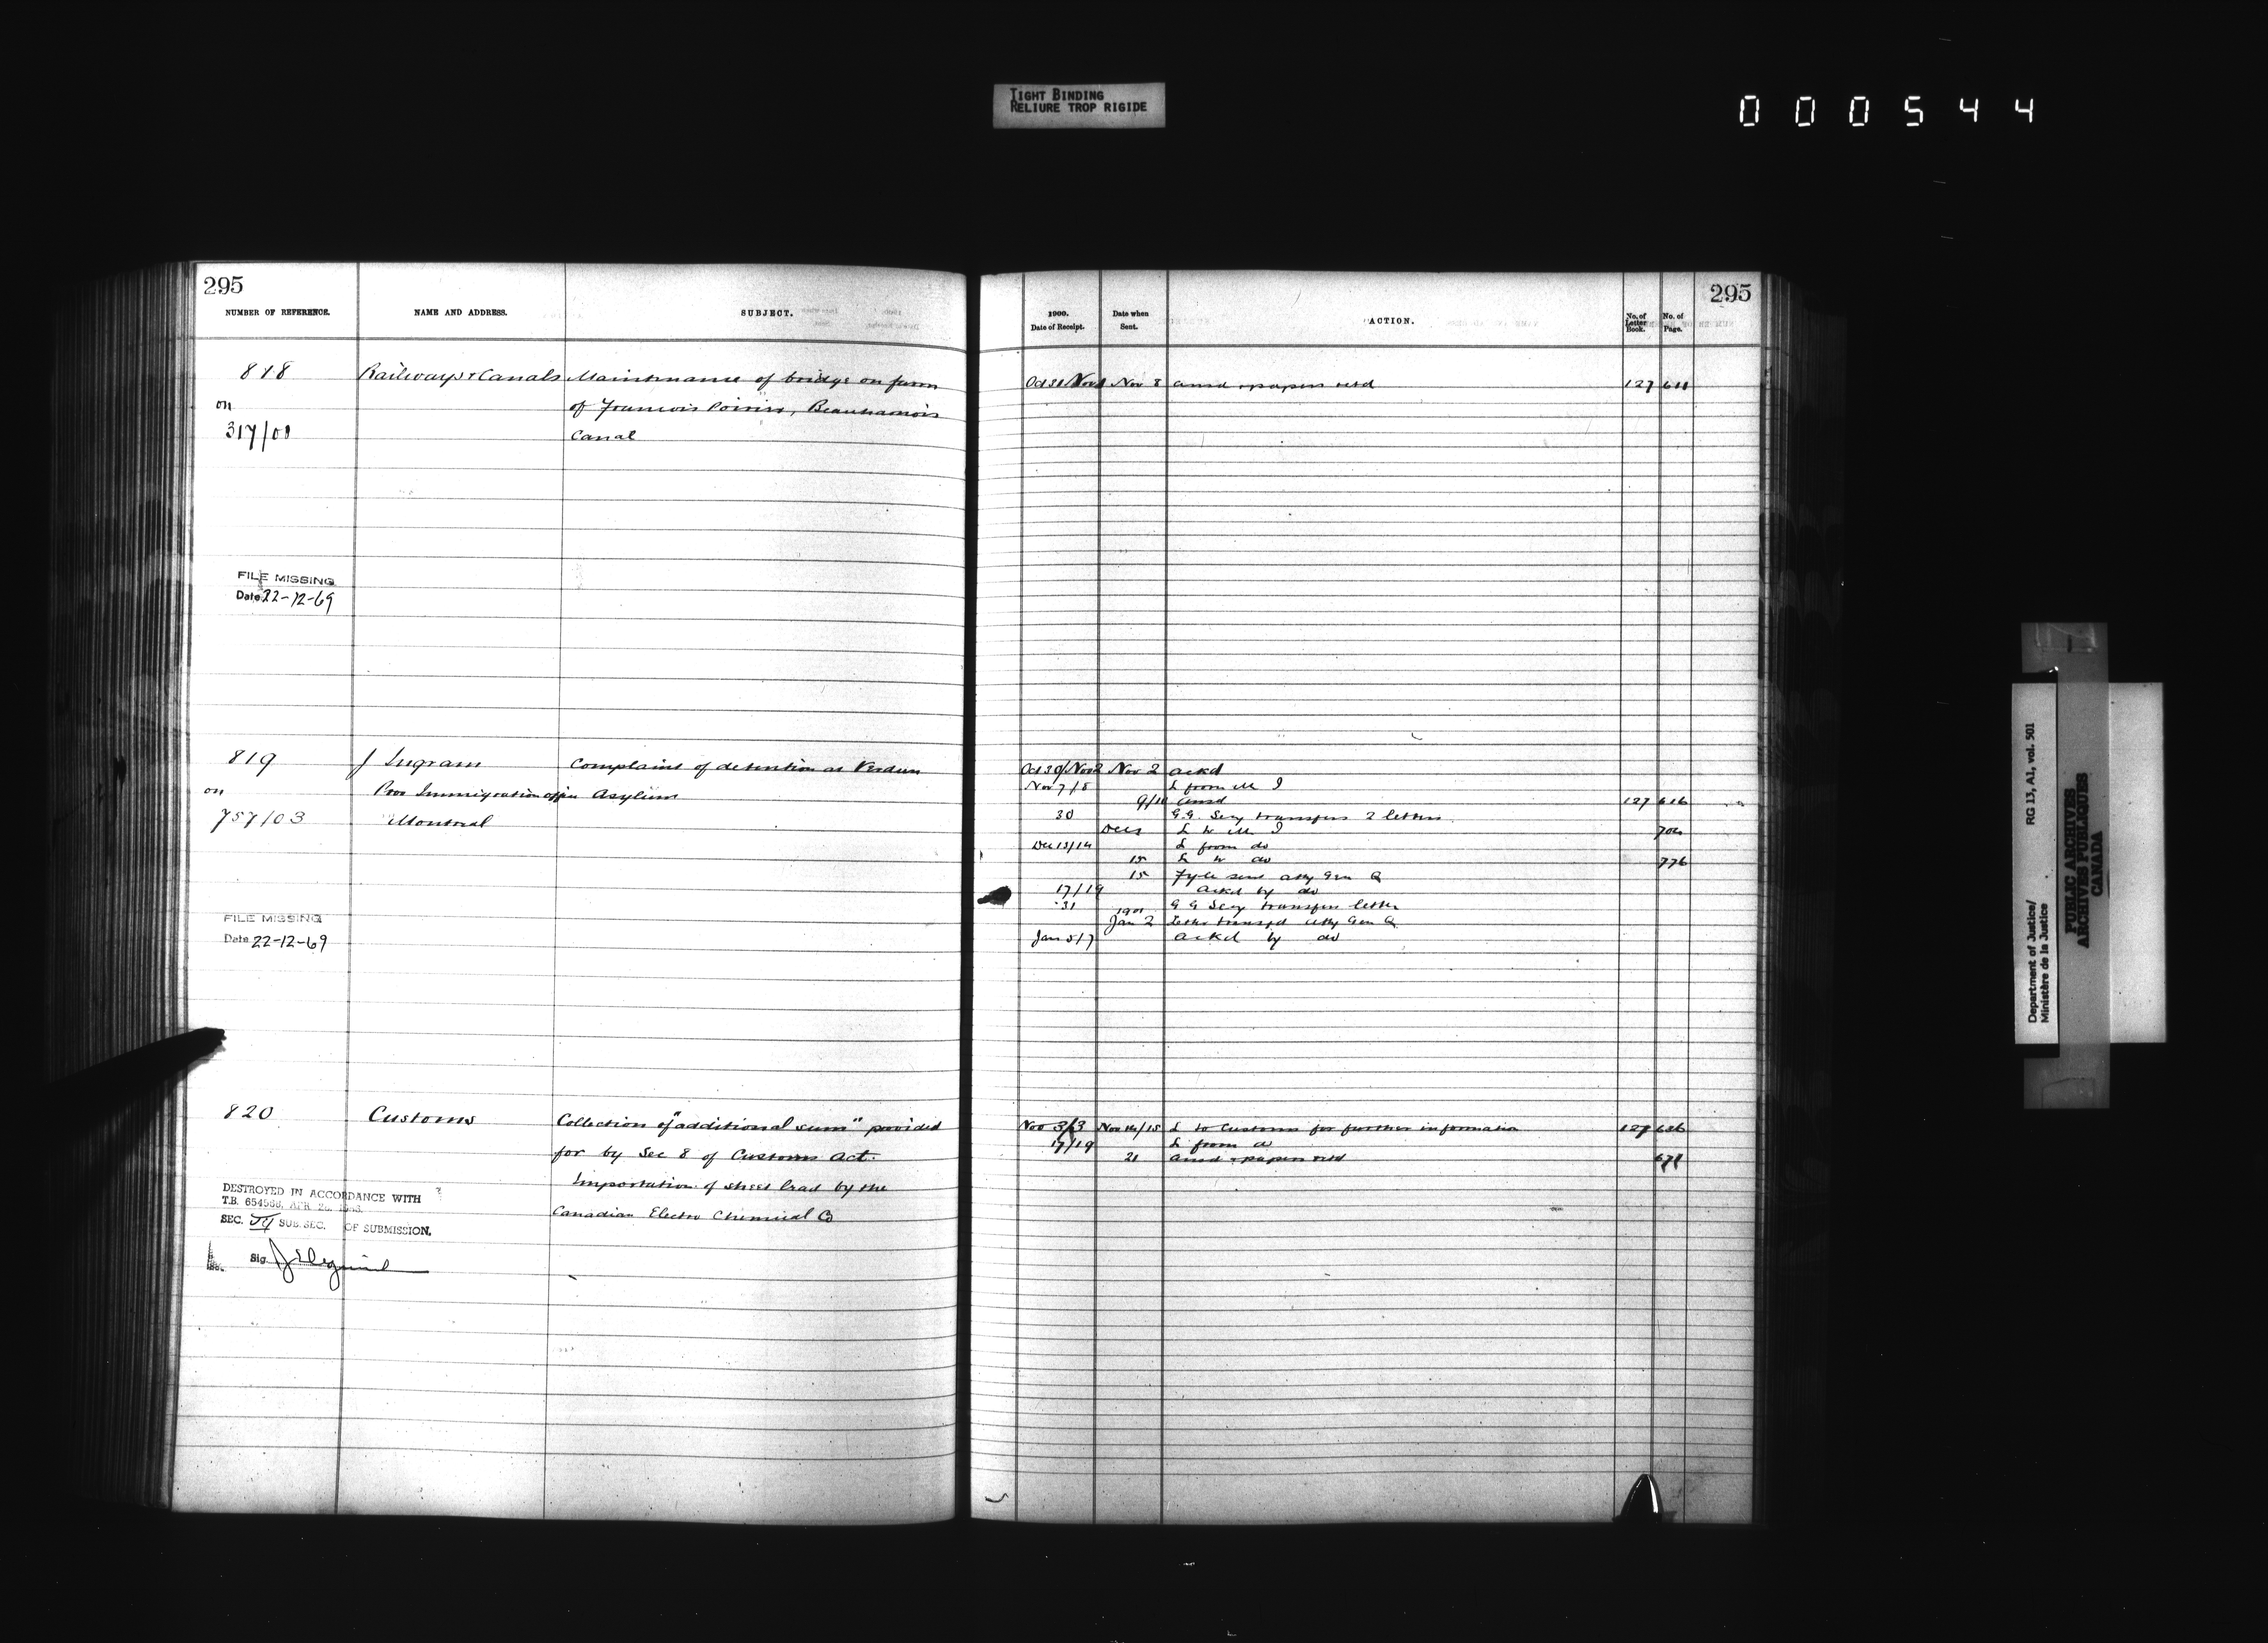 TIGHT BINDING
RELIURE TROP RIGIDE
000544
295
NUMBER OF REFERENCE. NAME AND ADDRESS. SUBJECT.
818 Railways & Canals Maintenance of bridge on farm
on of Francois Poirier, Beauharnois
317/00 Canal
FILE MISSING
Date 22-12-69
819 J Ingram Complaint of detention at Verdun
on Prov Immigration office Asylum
757/03 Montreal
FILE MISSING
Date 22-12-69
820 Customs Collection of "additional sum" provided
for by Sec 8 of Customs Act.
Importation of sheet lead by the
Canadian Electro Chemical Co
DESTROYED IN ACCORDANCE WITH
T.B. 654566, APR 26, 1963.
SEC. SUB. SEC. OF SUBMISSION.
Sig.
295
1900.
Date of Receipt. Date when Sent. ACTION. No. of Letter Book. No. of Page.
Oct 31/Nov 1 Nov 8 ansd & papers retd 127 611
Oct 30/Nov 2 Nov 2 ackd
Nov 7/8 L from M I
9/10 ansd 127 616
30 G.G. Secy transfers 2 letters
Dec L to M I
Dec 13/14 L from do
15 L to do 776
15 Fyle sent Atty Gen Q
17/19 ackd by do
31 G G Secy transfers letter
1901
Jan 2 Letter transfd Atty Gen Q
Jan 5/7 ackd by do
Nov 3/3 Nov 14/15 L to Customs for further information 127 636
17/19 L from do
21 ansd & papers retd 671
Department of Justice/ RG 13, A1, vol. 501
Ministère de la Justice
PUBLIC ARCHIVES
ARCHIVES PUBLIQUES
CANADA